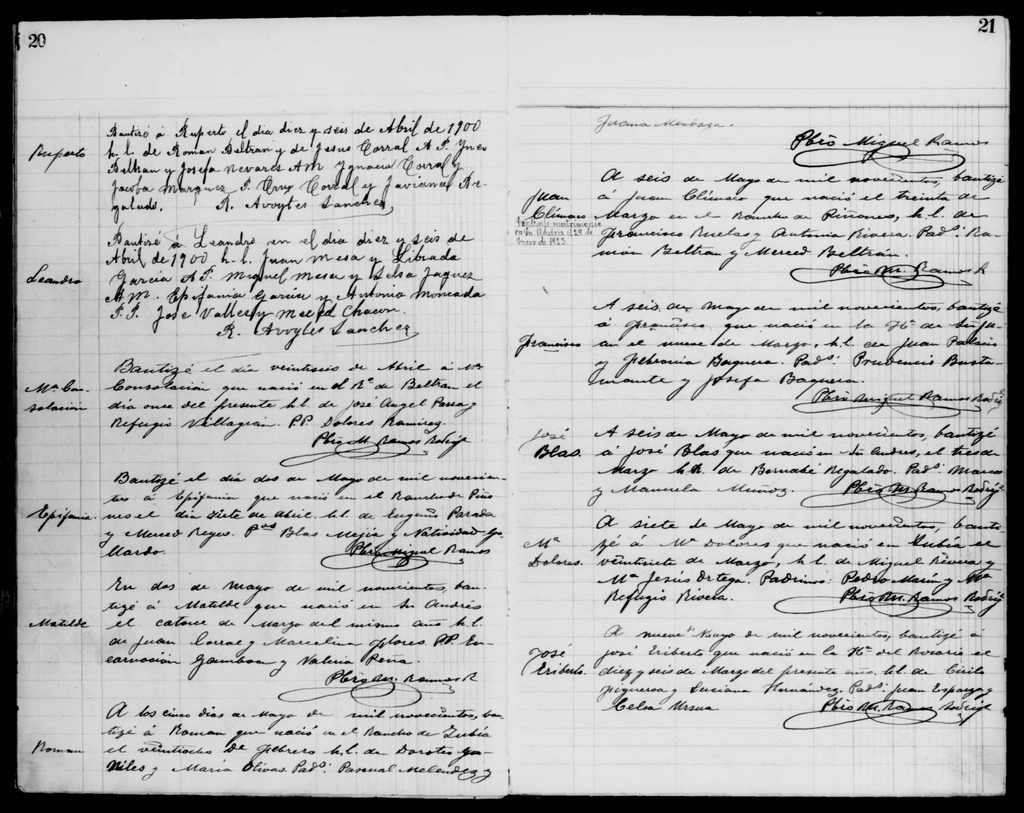 20
Ruperto
Bautizó á Ruperto el dia diez y seis de Abril de 1900
h. l. de Roman Beltran y de Jesus Corral A P. Ynes
Beltran y Josefa Nevares A M Ygnacio Corral y
Jacoba Marquez P. Cruz Corral y Javiana Re-
galado. R. Avoytes Sanchez
Leandro
Bautizé á Leandro en el dia diez y seis de
Abril de 1900 h. l. Juan Mesa y Librada
Garcia A P. Miguel Mesa y Selsa Jaquez
A M. Epifania Garcia y Antonio Moncada
P. P. Jose Valles y Merced Chacon.
R. Avoytes Sanchez
Ma. Con-
solacion
Bautizé el día veintiseis de Abril á Ma.
Consolación que nació en el Ro. de Beltran el
día once del presente h. l. de José Angel Parra y
Refugio Villagran. PP. Dolores Ramirez.
Pbro M. Ramos Rodrigz
Epifania.
Bautizé el día dos de Mayo de mil novecien-
tos á Epifania que nació en el Rancho de Piño
nes el día siete de Abril. h. l. de Eugenio Parada
y Merced Reyes. Pnos Blas Mejía y Natividad Ga-
llardo. Pbro Miguel Ramos
Matilde
En dos de Mayo de mil novecientos, bau-
tizé á Matilde que nació en Sn Andrés
el catorce de Marzo del mismo año h. l.
de Juan Corral y Marcelina Flores. PP. En-
carnación Gamboa y Valeria Peña.
Pbro M. Ramos R
Roman
A los cinco días de Mayo de mil novecientos, bau
tizé á Roman que nació en el Rancho de Zubía
el veintiocho de febrero h. l. de Doroteo Ga-
niles y María Olivas. Pads: Pascual Melendez y
21
Juana Mendoza.
Pbro Miguel Ramos
Juan
Clímaco
A seis de Mayo de mil novecientos, bautizé
á Juan Clímaco que nació el treinta de
Marzo en el Rancho de Piñones, h. l. de
Francisco Ruelas y Antonia Rivera. Pads: Ra-
món Beltran y Merced Beltrán.
Pbro M. Ramos R
Francisco
A seis de Mayo de mil novecientos, bautizé
á Francisco que nació en la Ha. de
en el nueve de Marzo, h. l. de Juan
y Petronia Baquera. Pads: Prudencio Busta-
mante y Josefa Baquera.
Pbro Miguel Ramos Rodrigz
José
Blas.
A seis de Mayo de mil novecientos, bautizé
á José Blas que nació en Sn Andres, el tres de
Marzo h. n. de Bernabé Regalado. Pads: Marcos
y Manuela Muñoz. Pbro M. Ramos Rodrigz
Ma.
Dolores.
A siete de Mayo de mil novecientos, bauti-
zé á Ma. Dolores que nació en Zubía el
veintisiete de Marzo, h. l. de Miguel Rivera y
Ma. Jesús Ortega. Padrinos: Pedro Marín y Ma.
Refugio Rivera. Pbro M. Ramos Rodrigz
José
Eriberto.
A nueve de Mayo de mil novecientos, bautizé á
José Eriberto que nació en la Ha. del Rosario el
diez y seis de Marzo del presente año. h. l. de Cirilo
Figueroa y Luciana Hernández. Pads: Juan Esparza y
Celsa Ursua Pbro M. Ramos Rodrigz